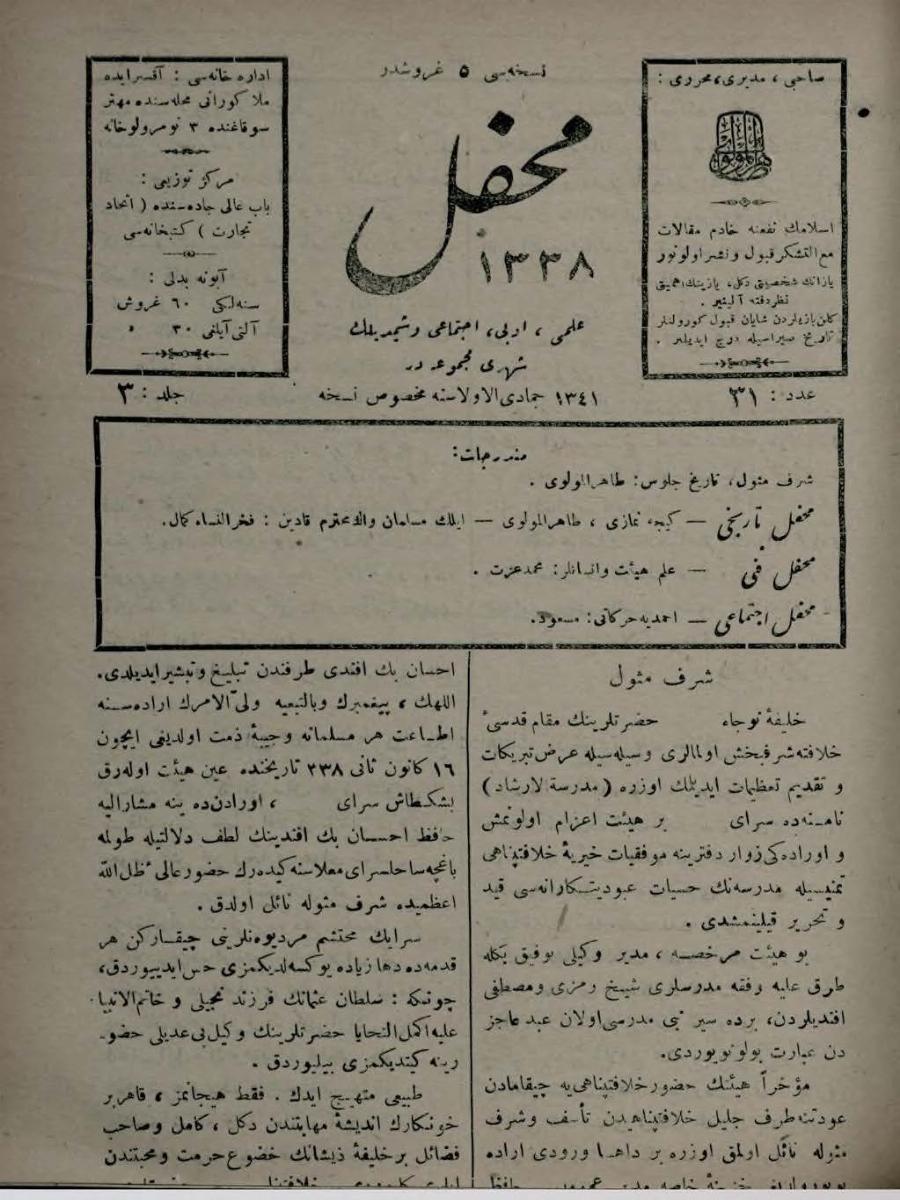 نسخه‌سی ٥ غروشدر
صاحبی ، مدیری ، محرری :
اسلامك نفعنه خادم مقالات
مع التشكر قبول و نشر اولونور
یازانك شخصیتی دكل، یازینك اهمیتی
نظر دقته آلینیر .
كلن یازیلردن شایان قبول كورولنلر
تاریخ صیراسیله درج ایدیلیر .
محفل
١٣٣٨
علمی ، ادبی ، اجتماعی و شیمدیلك
شهری مجموعه در
اداره خانه‌سی : آقسرایده
ملا كورانی محله‌سنده مهتر
سوقاغنده ٣ نومرولو خانه
مركز توزیعی :
باب عالی جاده‌سنده ( اتحاد
تجارت ) كتبخانه‌سی
آبونه بدلی :
سنه‌لكی ٦٠ غروش
آلتی آیلغی ٣٠ »
عدد : ٣١
١٣٤١ جمادی الاولاسنه مخصوص نسخه
جلد : ٣
مندرجات :
شرف مثول، تاریخ جلوس : طاهر المولوی .
محفل تاریخی — كیجه نمازی ، طاهر المولوی — ایلك مسلمان والده محترم قادین : فخر النساء كمال.
محفل فنی — علم هیئت و انسانلر : محمد عزت .
محفل اجتماعی — احمدیه حركاتی : مسعود.
شرف مثول
خلیفهٔ نوجاه حضرتلرینك مقام قدسیٔ
خلافته شرفبخش اولمالری وسیله‌سیله عرض تبریكات
و تقدیم تعظیمات ایدیلك اوزره (مدرسة الارشاد)
نامنه‌ده سرای بر هیئت اعزام اولونمش
و اوراده‌كی زوار دفترینه موفقیات خیریهٔ خلافتپناهی
تمنیسیله مدرسه‌نك حسیات عبودیتكارانه‌سی قید
و تحریر قیلینمشدی .
بو هیئت مرخصه ، مدیر وكیلی توفیق بكله
طرق علیه و فقه مدرسلری شیخ رمزی و مصطفی
افندیلردن، برده سیر نبی مدرسی اولان عبد عاجز
دن عبارت بولونویوردی.
مؤخراً هیئتك حضور خلافتپناهی‌یه چیقامادن
عودتنه طرف جلیل خلافتپناهیدن تأسف و شرف
مثوله نائل اولمق اوزره بر داها ورودی اراده
احسان بك افندی طرفندن تبلیغ و تبشیر ایدیلدی.
اللهك ، پیغمبرك و بالتبعیه ولی الامرك اراده‌سنه
اطاعت هر مسلمانه وجیبهٔ ذمت اولدیغی ایچون
١٦ كانون ثانی ٣٣٨ تاریخنده عین هیئت اوله‌رق
بشكطاش سرای ، اورادن‌ده ینه مشارالیه
حافظ احسان بك افندینك لطف دلالتیله طولمه
باغچه ساحلسرای معلاسنه كیده‌رك حضور عالی ظل الله
اعظمیده شرف مثوله نائل اولدق .
سرایك محتشم مردیوه‌نلرینی چیقاركن هر
قدمه‌ده دها زیاده یوكسه‌لدیكمزی حس ایدییوردق،
چونكه : سلطان عثمانك فرزند نجیلی و خاتم الانبیا
علیه اكمل التحایا حضرتلرینك وكیل بی عدیلی حضو-
رینه كیتدیكمزی بیلیوردق .
طبیعی متهیج ایدك . فقط هیجانمز ، قاهر بر
خونكارك اندیشهٔ مهابتندن دكل ، كامل و صاحب
فضائل بر خلیفهٔ ذیشانك خضوع حرمت و محبتندن